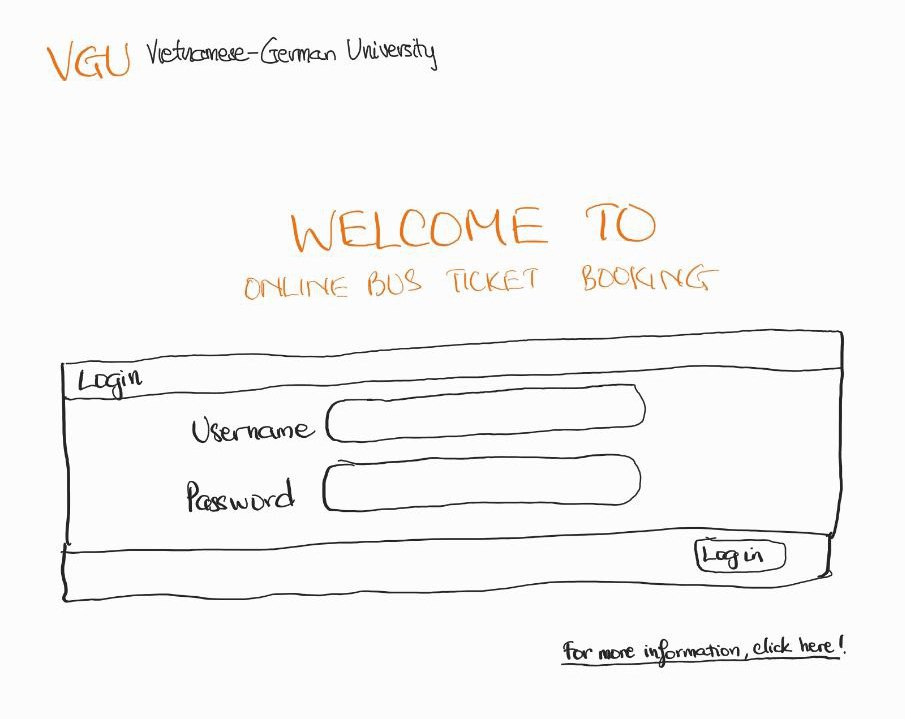 VGU Vietnamese-German University
WELCOME TO
ONLINE BUS TICKET BOOKING
Login
Username
Password
Login
For more information, click here!